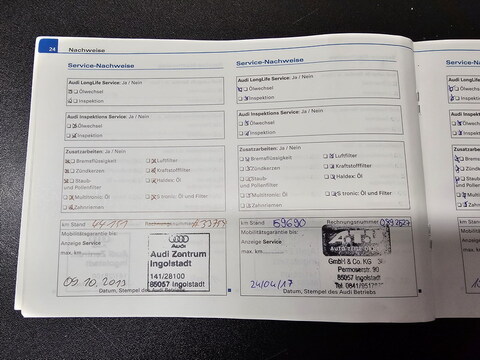 24 Nachweise
Service-Nachweise
Audi LongLife Service: Ja / Nein
Ölwechsel
Inspektion
Audi Inspektions Service: Ja / Nein
Ölwechsel
Inspektion
Zusatzarbeiten: Ja / Nein
Bremsflüssigkeit
Luftfilter
Zündkerzen
Kraftstofffilter
Staub-
und Pollenfilter
Haldex: Öl
Multitronic: Öl
S tronic: Öl und Filter
Zahnriemen
km Stand
Rechnungsnummer
Mobilitätsgarantie bis:
Anzeige Service
max. km
Audi
Audi Zentrum
Ingolstadt
141/28100
85057 Ingolstadt
09.10.2013
Datum, Stempel des Audi Betriebs
Service-Nachweise
Audi LongLife Service: Ja / Nein
Ölwechsel
Inspektion
Audi Inspektions Service: Ja / Nein
Ölwechsel
Inspektion
Zusatzarbeiten: Ja / Nein
Bremsflüssigkeit
Luftfilter
Zündkerzen
Kraftstofffilter
Staub-
und Pollenfilter
Haldex: Öl
Multitronic: Öl
S tronic: Öl und Filter
Zahnriemen
km Stand 59690 Rechnungsnummer
Mobilitätsgarantie bis:
Anzeige Service
max. km
GmbH & Co. KG
Permoserstr. 90
85057 Ingolstadt
24/04/17
Datum, Stempel des Audi Betriebs
Service-Na
Audi LongLife
Ölwechsel
Inspektion
Audi Inspektio
Ölwechsel
Inspektion
Zusatzarbeiten